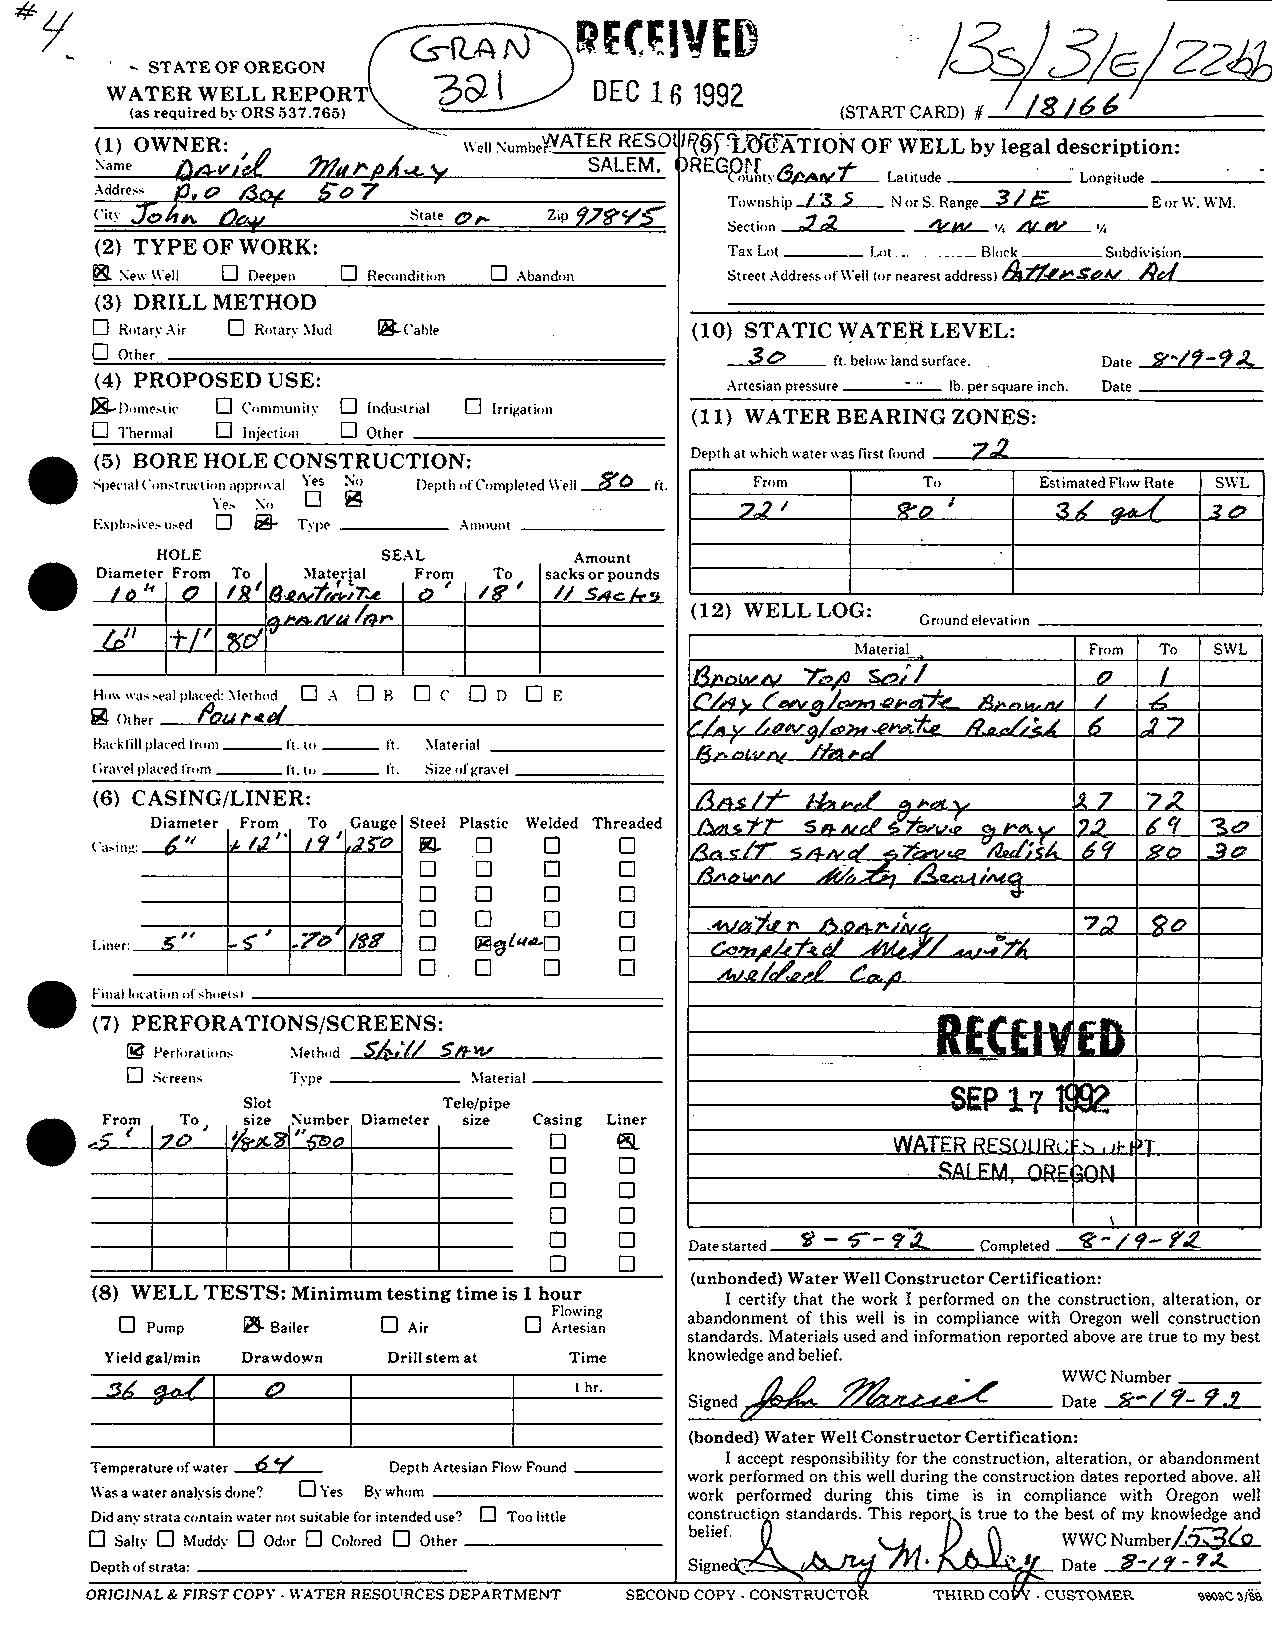 #4
GRAN
321
RECEIVED
DEC 16 1992
WATER RESOURCES
SALEM, OREGON
13S/31E/22bb
STATE OF OREGON
WATER WELL REPORT
(as required by ORS 537.765)
(START CARD) # 18166
(1) OWNER: Well Number
Name David Murphey
Address P.O Box 507
City John Day State or Zip 97845
(2) TYPE OF WORK:
☒ New Well ☐ Deepen ☐ Recondition ☐ Abandon
(3) DRILL METHOD
☐ Rotary Air ☐ Rotary Mud ☒ Cable
☐ Other
(4) PROPOSED USE:
☒ Domestic ☐ Community ☐ Industrial ☐ Irrigation
☐ Thermal ☐ Injection ☐ Other
(5) BORE HOLE CONSTRUCTION:
Special Construction approval Yes ☐ No ☒ Depth of Completed Well 80 ft.
Explosives used Yes ☐ No ☒ Type Amount
HOLE SEAL Amount
Diameter From To Material From To sacks or pounds
10" 0 18' Bentinite 0' 18' 11 SACKS
granular
6" +1' 80'
How was seal placed: Method ☐ A ☐ B ☐ C ☐ D ☐ E
☒ Other Poured
Backfill placed from ft. to ft. Material
Gravel placed from ft. to ft. Size of gravel
(6) CASING/LINER:
Diameter From To Gauge Steel Plastic Welded Threaded
Casing: 6" +12" 19' .250 ☒ ☐ ☐ ☐
Liner: 5" -5' -70' 188 ☐ ☒ glue ☐ ☐
Final location of shoe(s)
(7) PERFORATIONS/SCREENS:
☒ Perforations Method Skill SAW
☐ Screens Type Material
From To Slot size Number Diameter Tele/pipe size Casing Liner
-5' 70' 1/8x8" 500 ☐ ☒
(8) WELL TESTS: Minimum testing time is 1 hour
☐ Pump ☒ Bailer ☐ Air ☐ Flowing Artesian
Yield gal/min Drawdown Drill stem at Time
36 gal 0 1 hr.
Temperature of water 64 Depth Artesian Flow Found
Was a water analysis done? ☐ Yes By whom
Did any strata contain water not suitable for intended use? ☐ Too little
☐ Salty ☐ Muddy ☐ Odor ☐ Colored ☐ Other
Depth of strata:
(9) LOCATION OF WELL by legal description:
County GRANT Latitude Longitude
Township 13S N or S. Range 31E E or W. WM.
Section 22 NW ¼ NW ¼
Tax Lot Lot Block Subdivision
Street Address of Well (or nearest address) Patterson Rd
(10) STATIC WATER LEVEL:
30 ft. below land surface. Date 8-19-92
Artesian pressure lb. per square inch. Date
(11) WATER BEARING ZONES:
Depth at which water was first found 72
From To Estimated Flow Rate SWL
72' 80' 36 gal 30
(12) WELL LOG: Ground elevation
Material From To SWL
Brown Top Soil 0 1
Clay Conglomerate Brown 1 6
Clay Conglomerate Redish 6 27
Brown Hard
BASlT Hard gray 27 72
BaslT SANd stone gray 72 69 30
BaslT SANd stone Redish 69 80 30
Brown Water Bearing
water Bearing 72 80
Completed Well with
welded Cap
RECEIVED
SEP 17 1992
WATER RESOURCES DEPT
SALEM, OREGON
Date started 8-5-92 Completed 8-19-92
(unbonded) Water Well Constructor Certification:
I certify that the work I performed on the construction, alteration, or
abandonment of this well is in compliance with Oregon well construction
standards. Materials used and information reported above are true to my best
knowledge and belief.
WWC Number
Signed John Date 8-19-92
(bonded) Water Well Constructor Certification:
I accept responsibility for the construction, alteration, or abandonment
work performed on this well during the construction dates reported above. all
work performed during this time is in compliance with Oregon well
construction standards. This report is true to the best of my knowledge and
belief.
WWC Number 1536
Signed Gary M. Date 8-19-92
ORIGINAL & FIRST COPY - WATER RESOURCES DEPARTMENT SECOND COPY - CONSTRUCTOR THIRD COPY - CUSTOMER 9809C 3/88